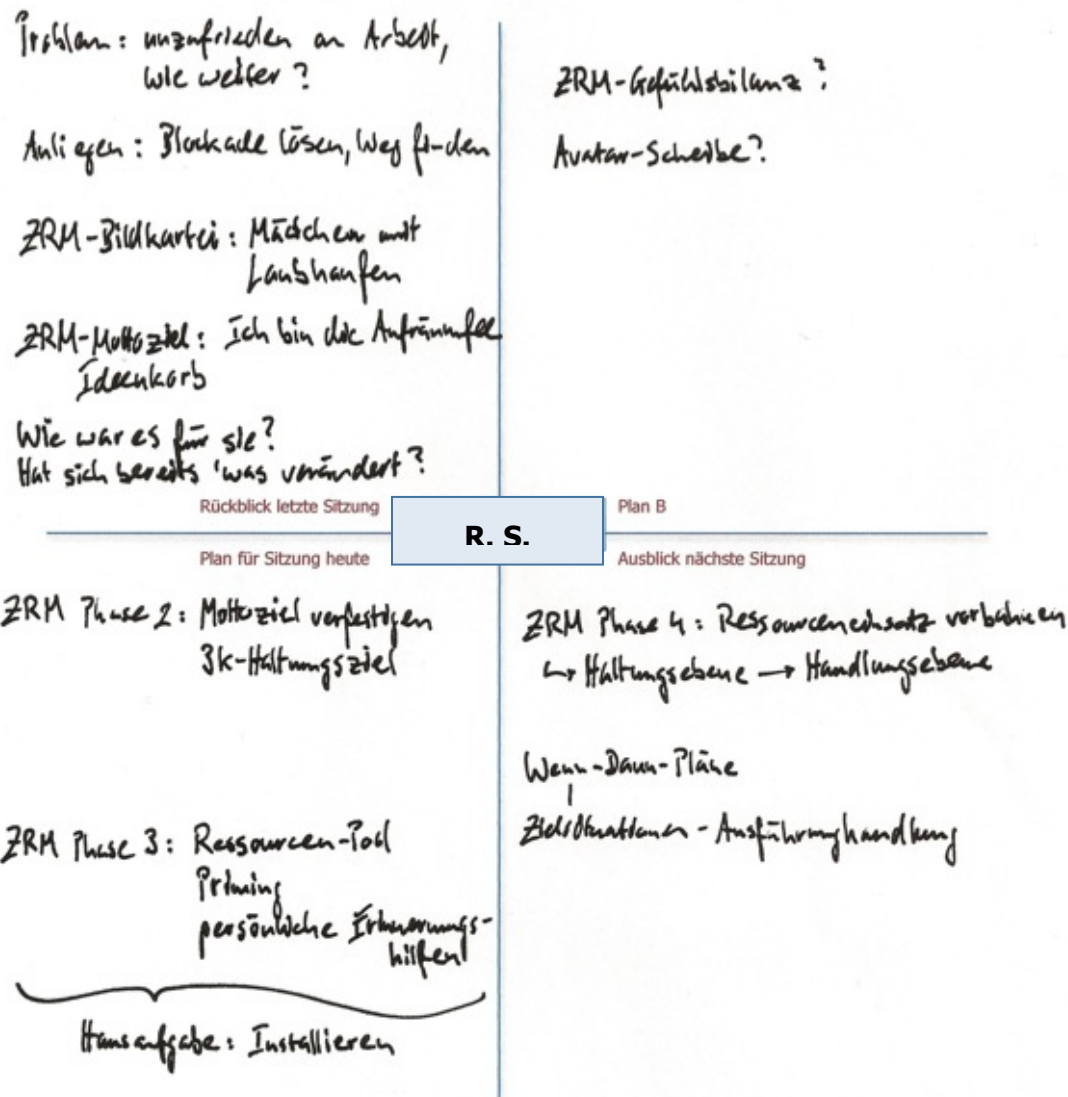 Problem: unzufrieden an Arbeit,
wie weiter?
Anliegen: Blockade lösen, Weg finden
ZRM-Bildkartei: Mädchen mit
Laubhaufen
ZRM-Mottoziel: Ich bin die Aufräumfee
Ideenkorb
Wie war es für sie?
Hat sich bereits 'was verändert?
Rückblick letzte Sitzung
ZRM-Gefühlsbilanz?
Avatar-Scheibe?
Plan B
R. S.
Plan für Sitzung heute
ZRM Phase 2: Mottoziel verfestigen
3k-Haltungsziel
ZRM Phase 3: Ressourcen-Pool
Priming
persönliche Erinnerungs-
hilfen
Hausaufgabe: Installieren
Ausblick nächste Sitzung
ZRM Phase 4: Ressourceneinsatz vorbahnen
↳ Haltungsebene → Handlungsebene
Wenn-Dann-Pläne
Zielsituationen - Ausführunghandlung